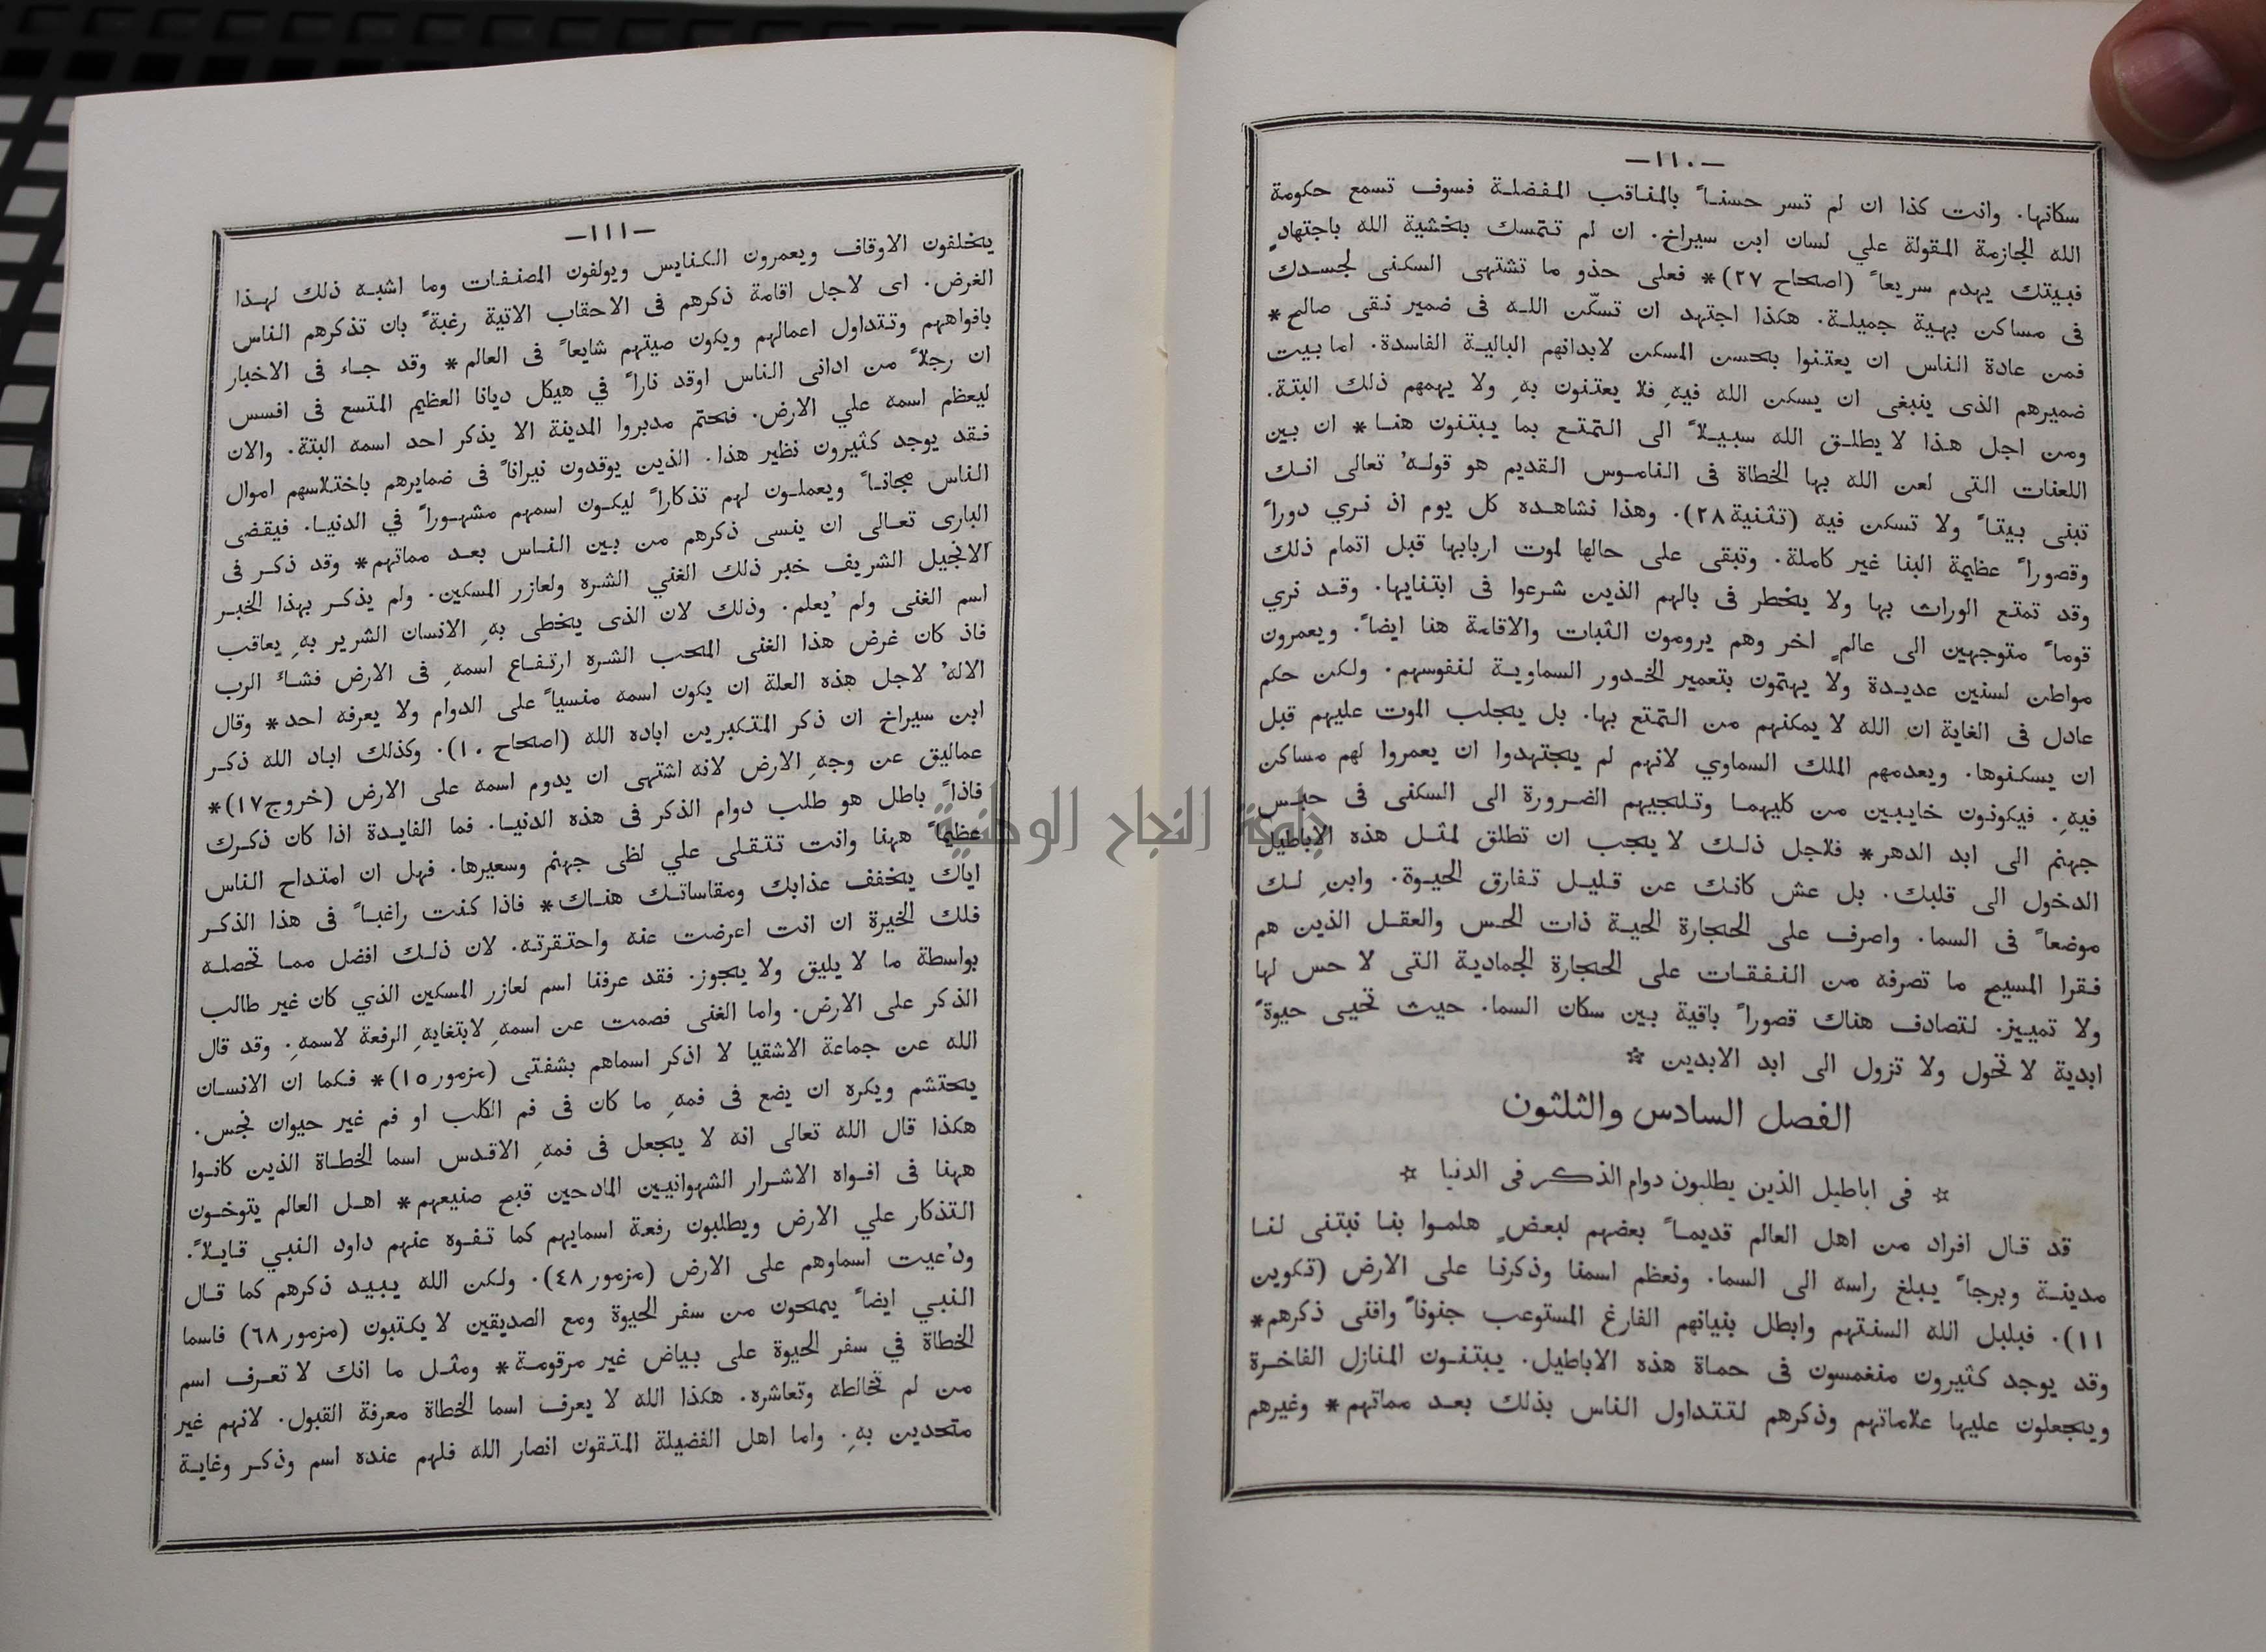 —١١٠—
سكانها. وانت كذا ان لم تسر حسناً بالمناقب المفضلة فسوف تسمع حكومة
الله الجازمة المقولة علي لسان ابن سيراخ. ان لم تتمسك بخشية الله باجتهادٍ
فبيتك يهدم سريعاً (اصحاح ٢٧)* فعلى حذو ما تشتهى السكنى لجسدك
فى مساكن بهية جميلة. هكذا اجتهد ان تسكّن الله فى ضمير نقى صالح*
فمن عادة الناس ان يعتنوا بحسن المسكن لابدانهم البالية الفاسدة. اما بيت
ضميرهم الذى ينبغى ان يسكن الله فيهِ فلا يعتنون بهِ ولا يهمهم ذلك البتة.
ومن اجل هذا لا يطلق الله سبيلاً الى التمتع بما يبتنون هنا* ان بين
اللعنات التى لعن الله بها الخطاة فى الناموس القديم هو قولهُ تعالى انك
تبنى بيتاً ولا تسكن فيه (تثنية٢٨). وهذا نشاهده كل يوم اذ نري دوراً
وقصوراً عظيمة البنا غير كاملة. وتبقى على حالها لموت اربابها قبل اتمام ذلك
وقد تمتع الوراث بها ولا يخطر فى بالهم الذين شرعوا فى ابتنايها. وقد نري
قوماً متوجهين الى عالمٍ اخر وهم يرومون الثبات والاقامة هنا ايضاً. ويعمرون
مواطن لسنين عديدة ولا يهتمون بتعمير الخدور السماوية لنفوسهم. ولكن حكم
عادل فى الغاية ان الله لا يمكنهم من التمتع بها. بل يجلب الموت عليهم قبل
ان يسكنوها. ويعدمهم الملك السماوي لانهم لم يجتهدوا ان يعمروا لهم مساكن
فيهِ. فيكونون خايبين من كليهما وتلجيهم الضرورة الى السكنى فى حبس
جهنم الى ابد الدهر* فلاجل ذلك لا يجب ان تطلق لمثل هذه الاباطيل
الدخول الى قلبك. بل عش كانك عن قليل تفارق الحيوة. وابنِ لك
موضعاً فى السما. واصرف على الحجارة الحية ذات الحس والعقل الذين هم
فقرا المسيح ما تصرفه من النفقات على الحجارة الجمادية التى لا حس لها
ولا تمييز. لتصادف هناك قصوراً باقية بين سكان السما. حيث تحيى حيوةً
ابدية لا تحول ولا تزول الى ابد الابدين ☆
الفصل السادس والثلثون
☆ فى اباطيل الذين يطلبون دوام الذكر فى الدنيا ☆
قد قال افراد من اهل العالم قديماً بعضهم لبعضٍ هلموا بنا نبتنى لنا
مدينة وبرجاً يبلغ راسه الى السما. ونعظم اسمنا وذكرنا على الارض (تكوين
١١). فبلبل الله السنتهم وابطل بنيانهم الفارغ المستوعب جنوناً وافنى ذكرهم*
وقد يوجد كثيرون منغمسون فى حماة هذه الاباطيل. يبتنون المنازل الفاخرة
ويجعلون عليها علاماتهم وذكرهم لتتداول الناس بذلك بعد مماتهم* وغيرهم
—١١١—
يخلفون الاوقاف ويعمرون الكنايس ويولفون المصنفات وما اشبه ذلك لهذا
الغرض. اى لاجل اقامة ذكرهم فى الاحقاب الاتية رغبةً بان تذكرهم الناس
بافواههم وتتداول اعمالهم ويكون صيتهم شايعاً فى العالم* وقد جاء فى الاخبار
ان رجلاً من ادانى الناس اوقد ناراً في هيكل ديانا العظيم المتسع فى افسس
ليعظم اسمه علي الارض. فحتم مدبروا المدينة الا يذكر احد اسمه البتة. والان
فقد يوجد كثيرون نظير هذا. الذين يوقدون نيراناً فى ضمايرهم باختلاسهم اموال
الناس مجاناً ويعملون لهم تذكاراً ليكون اسمهم مشهوراً في الدنيا. فيقضى
البارى تعالى ان ينسى ذكرهم من بين الناس بعد مماتهم* وقد ذكر فى
الانجيل الشريف خبر ذلك الغني الشره ولعازر المسكين. ولم يذكر بهذا الخبر
اسم الغنى ولم يُعلم. وذلك لان الذى يخطى بهِ الانسان الشرير بهِ يعاقب
فاذ كان غرض هذا الغنى المحب الشره ارتفاع اسمهِ فى الارض فشاء الرب
الالهُ لاجل هذه العلة ان يكون اسمه منسياً على الدوام ولا يعرفه احد* وقال
ابن سيراخ ان ذكر المتكبرين اباده الله (اصحاح ١٠). وكذلك اباد الله ذكر
عماليق عن وجهِ الارض لانه اشتهى ان يدوم اسمه على الارض (خروج١٧)*
فاذاً باطل هو طلب دوام الذكر فى هذه الدنيا. فما الفايدة اذا كان ذكرك
عظيماً ههنا وانت تتقلى علي لظى جهنم وسعيرها. فهل ان امتداح الناس
اياك يخفف عذابك ومقاساتك هناك* فاذا كنت راغباً فى هذا الذكر
فلك الخيرة ان انت اعرضت عنه واحتقرته. لان ذلك افضل مما تحصله
بواسطة ما لا يليق ولا يجوز. فقد عرفنا اسم لعازر المسكين الذي كان غير طالب
الذكر على الارض. واما الغنى فصمت عن اسمهِ لابتغايهِ الرفعة لاسمهِ. وقد قال
الله عن جماعة الاشقيا لا اذكر اسماهم بشفتى (مزمور١٥)* فكما ان الانسان
يحتشم ويكره ان يضع فى فمهِ ما كان فى فم الكلب او فم غير حيوان نجس.
هكذا قال الله تعالى انه لا يجعل فى فمهِ الاقدس اسما الخطاة الذين كانوا
ههنا فى افواه الاشرار الشهوانيين المادحين قبح صنيعهم* اهل العالم يتوخون
التذكار علي الارض ويطلبون رفعة اسمايهم كما تفوه عنهم داود النبي قايلاً.
ودُعيت اسماوهم على الارض (مزمور٤٨). ولكن الله يبيد ذكرهم كما قال
النبي ايضاً يمحون من سفر الحيوة ومع الصديقين لا يكتبون (مزمور٦٨) فاسما
الخطاة في سفر الحيوة على بياض غير مرقومة* ومثل ما انك لا تعرف اسم
من لم تخالطه وتعاشره. هكذا الله لا يعرف اسما الخطاة معرفة القبول. لانهم غير
متحدين بهِ. واما اهل الفضيلة المتقون انصار الله فلهم عنده اسم وذكر وغاية
جامعة النجاح الوطنية